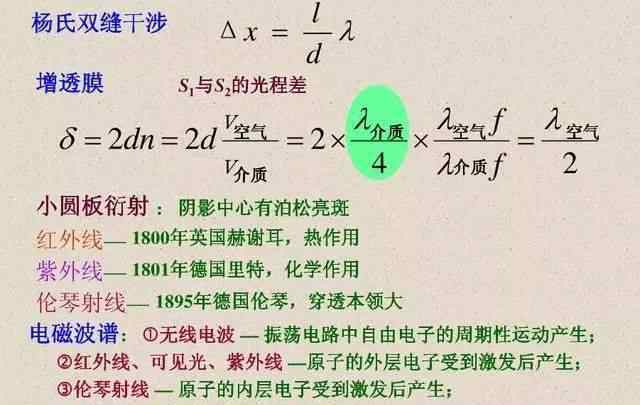 杨氏双缝干涉 Δx = l/d λ
增透膜 S₁与S₂的光程差
δ = 2dn = 2d V空气/V介质 = 2 × λ介质/4 × λ空气 f/λ介质 f = λ空气/2
小圆板衍射： 阴影中心有泊松亮斑
红外线— 1800年英国赫谢耳，热作用
紫外线— 1801年德国里特，化学作用
伦琴射线— 1895年德国伦琴，穿透本领大
电磁波谱：①无线电波 — 振荡电路中自由电子的周期性运动产生；
②红外线、可见光、紫外线 —原子的外层电子受到激发后产生；
③伦琴射线 — 原子的内层电子受到激发后产生；